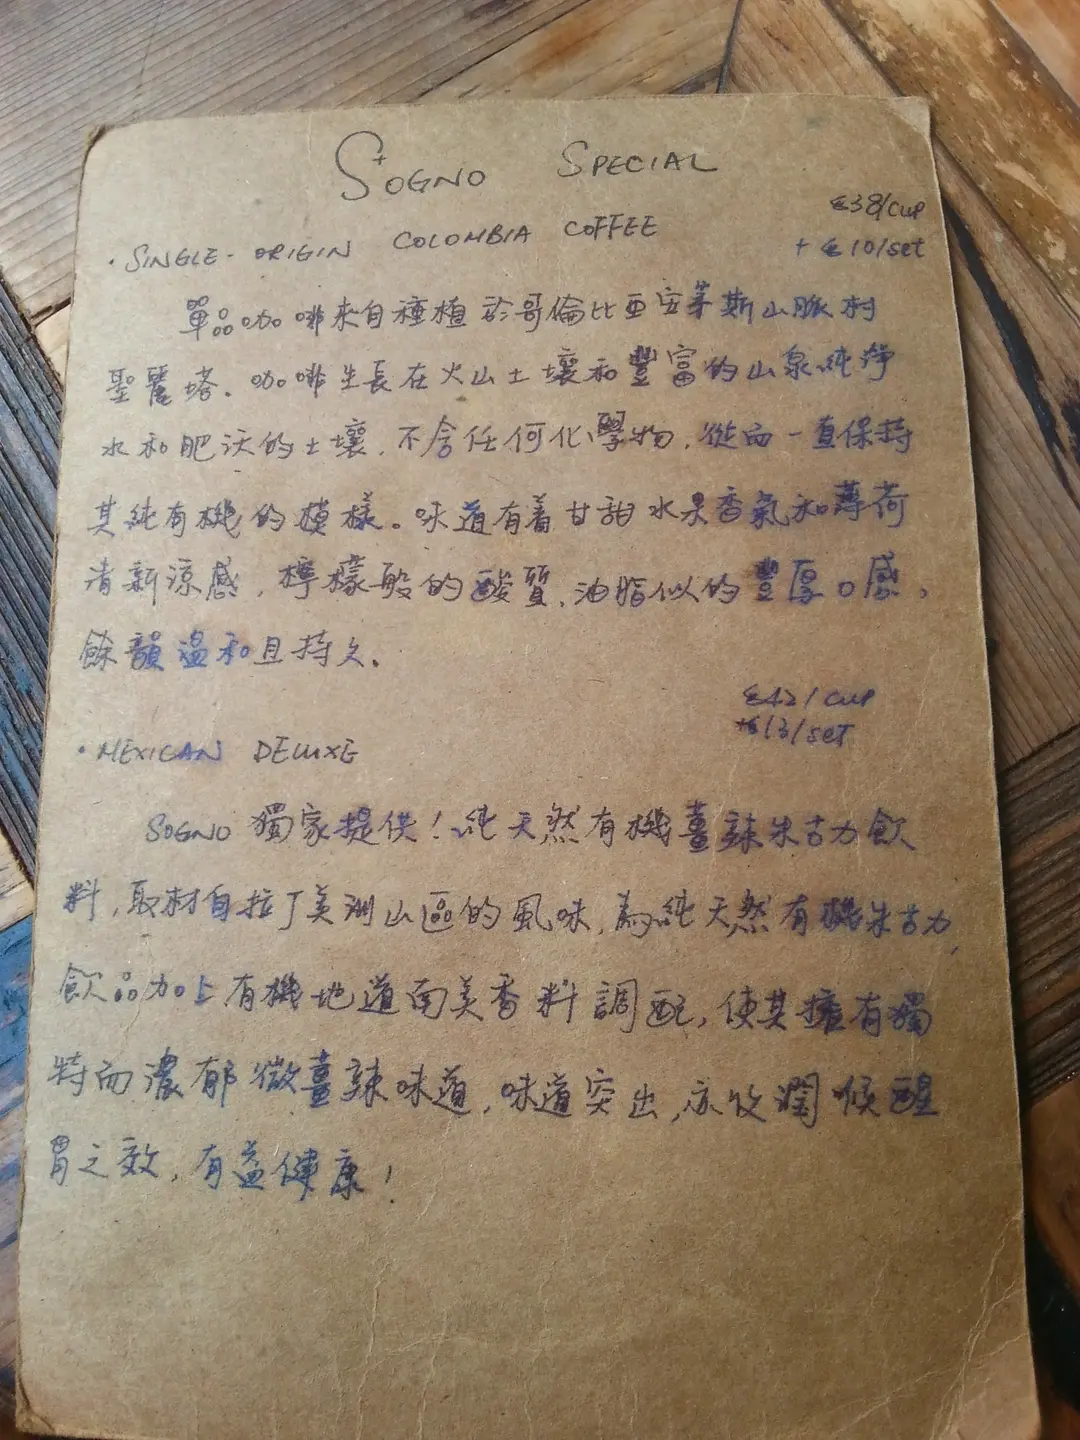 SOGNO SPECIAL
€38/cup
· SINGLE-ORIGIN COLOMBIA COFFEE + €10/set
單品咖啡來自種植於哥倫比亞安第斯山脈村
聖麗塔. 咖啡生長在火山土壤和豐富的山泉純淨
水和肥沃的土壤, 不含任何化學物, 從而一直保持
其純有機的模樣。味道有着甘甜水果香氣和薄荷
清新涼感, 檸檬般的酸質, 油脂似的豐厚口感,
餘韻溫和且持久.
€42/cup
+€13/set
· MEXICAN DELUXE
SOGNO 獨家提供! 純天然有機薑辣朱古力飲
料, 取材自拉丁美洲山區的風味, 為純天然有機朱古力
飲品加上有機地道南美香料調配, 使其擁有獨
特而濃郁微薑辣味道, 味道突出, 亦收潤喉醒
胃之效, 有益健康!